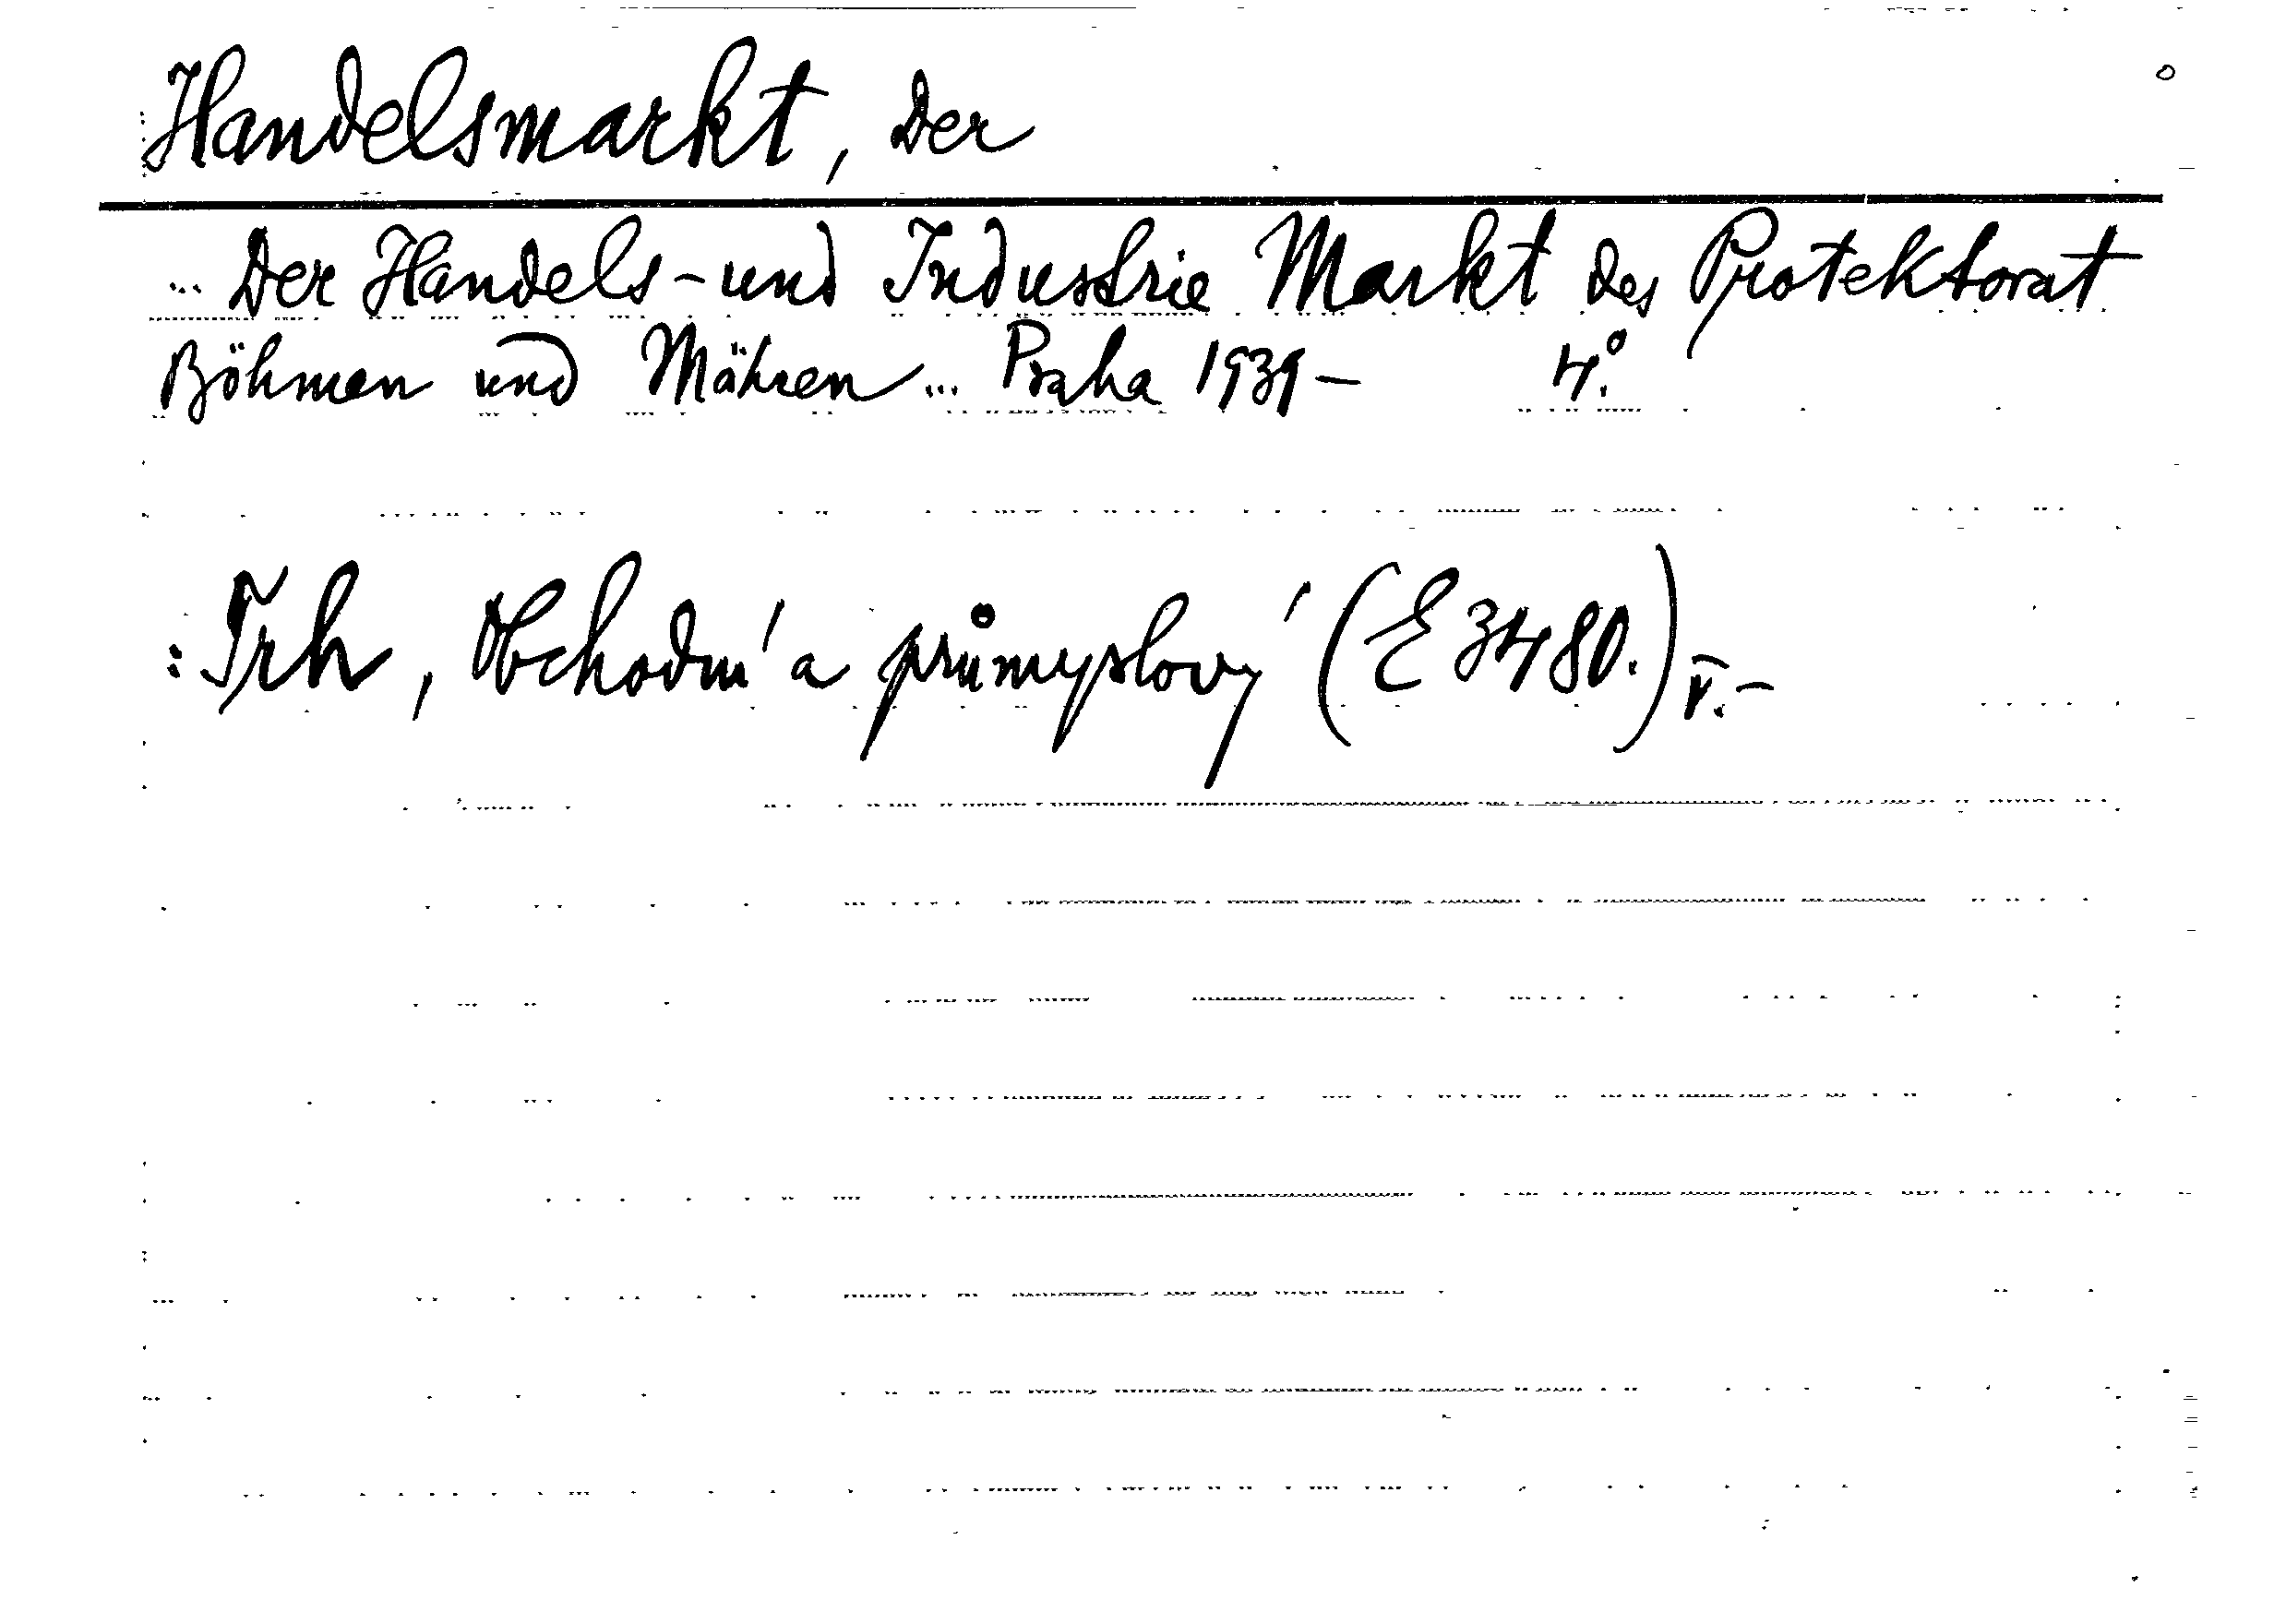 Handelsmarkt, Der
... Der Handels-und Industrie Markt des Protektorat
Böhmen und Mähren... Praha 1939- 4.°
: Trh, Obchodní a průmyslový (E 3480.) V.-